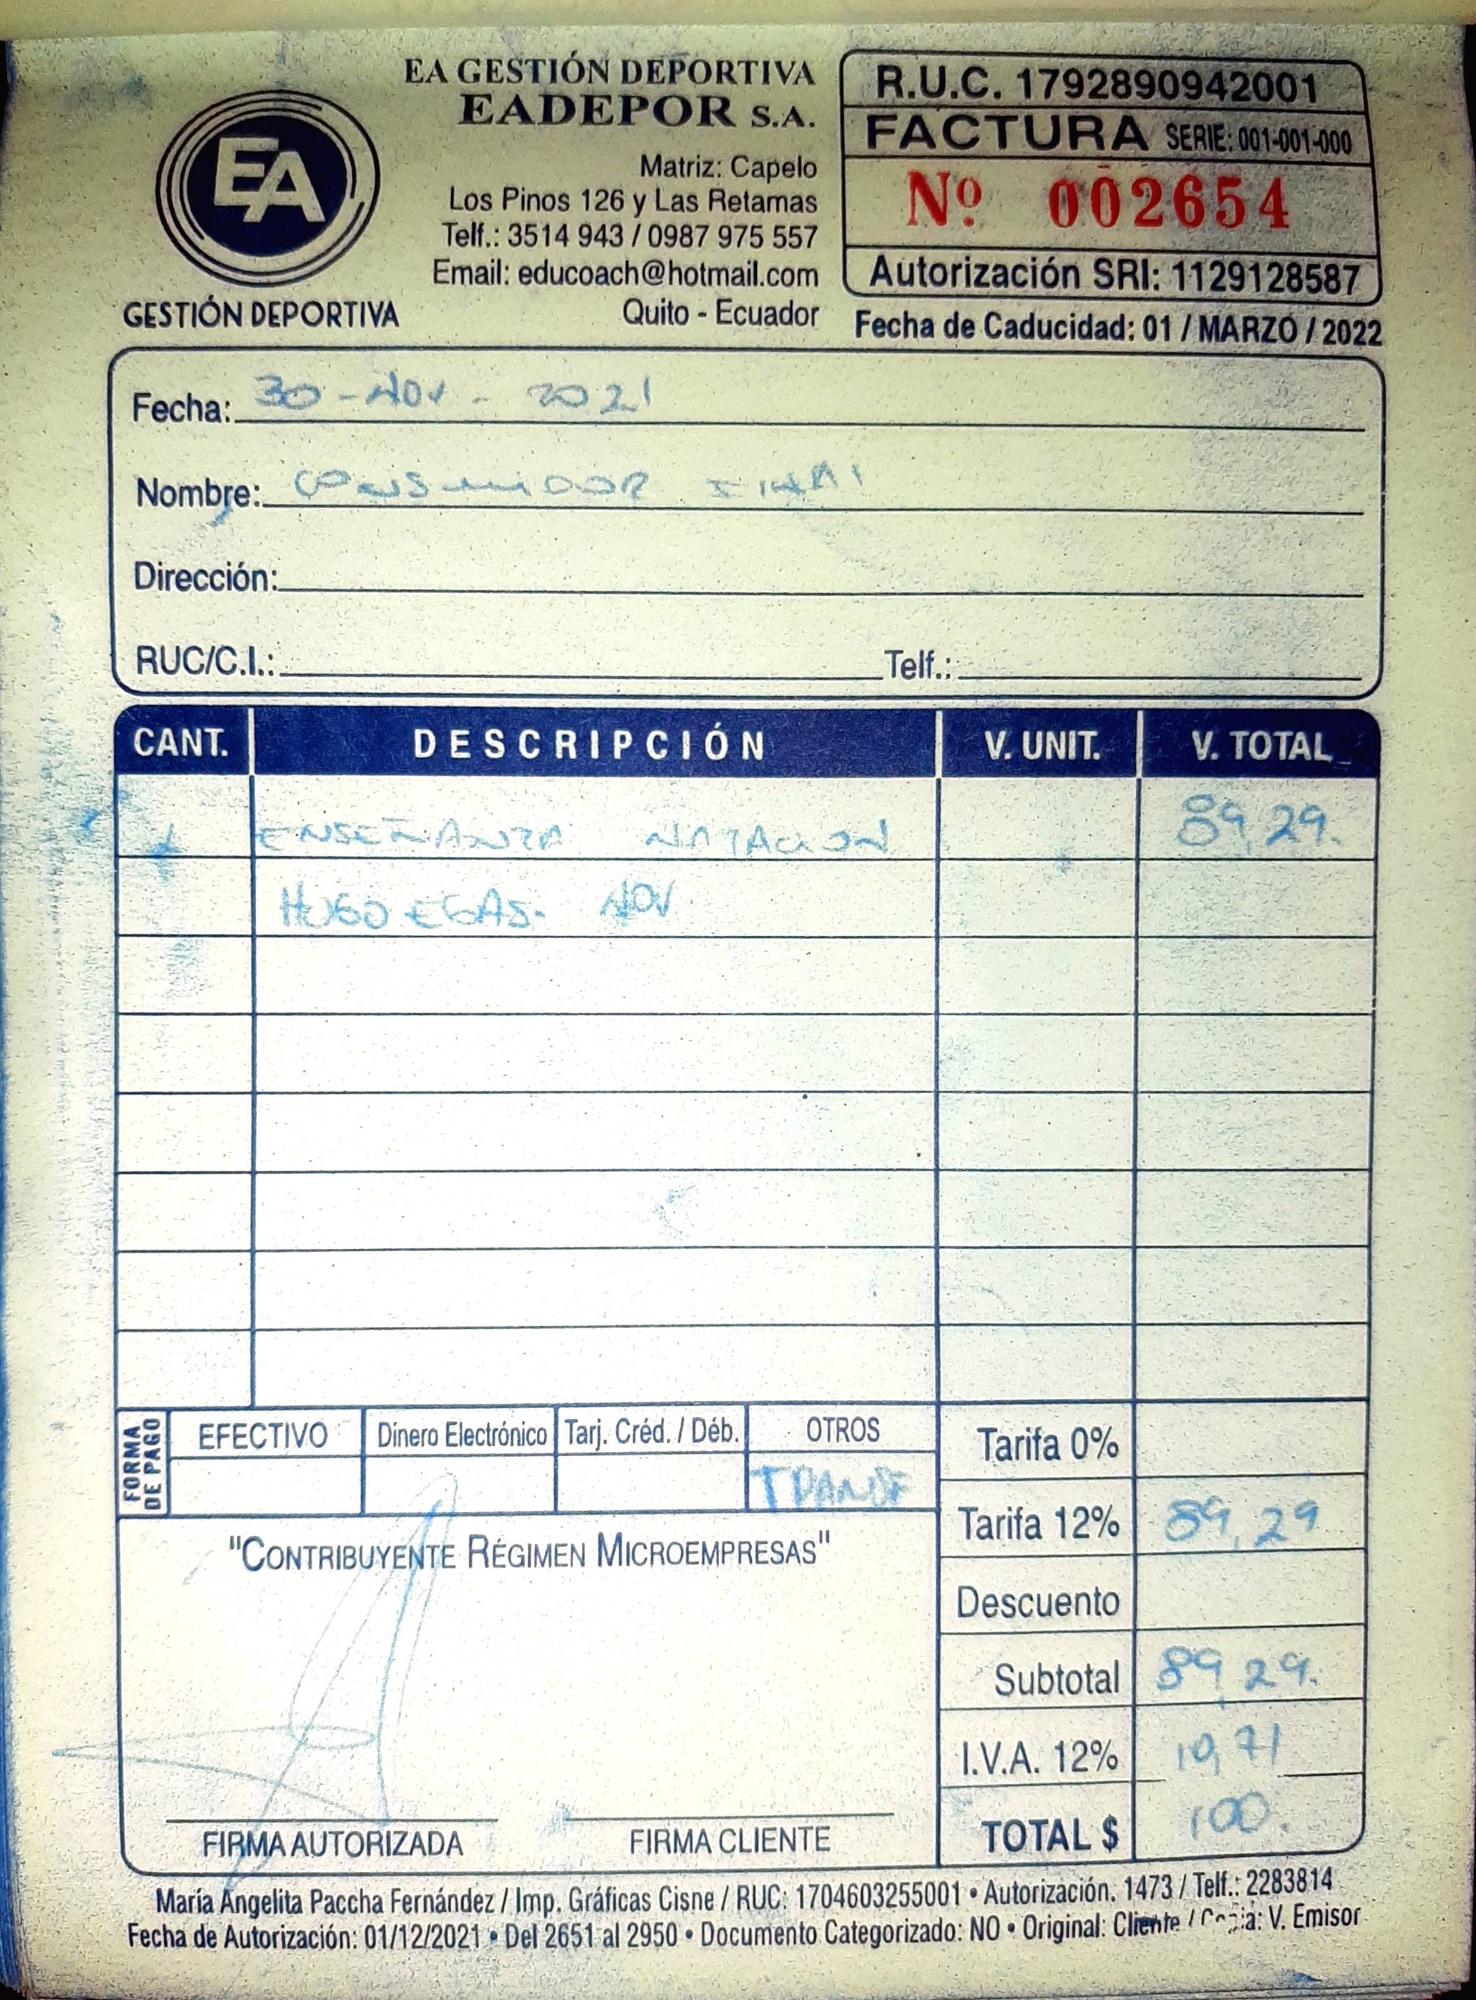 EA GESTIÓN DEPORTIVA
EADEPOR S.A.
Matriz: Capelo
Los Pinos 126 y Las Retamas
Telf.: 3514 943 / 0987 975 557
Email: educoach@hotmail.com
Quito - Ecuador
EA
GESTIÓN DEPORTIVA
R.U.C. 1792890942001
FACTURA SERIE: 001-001-000
Nº 002654
Autorización SRI: 1129128587
Fecha de Caducidad: 01 / MARZO / 2022
Fecha: 30 - NOV - 2021
Nombre: CONSUMIDOR FINAL
Dirección:
RUC/C.I.: Telf.:
CANT. DESCRIPCIÓN V. UNIT. V. TOTAL
1 ENSEÑANZA NATACION 89,29.
HUGO EGAS. NOV
FORMA DE PAGO
EFECTIVO Dinero Electrónico Tarj. Créd. / Déb. OTROS
TRANSF
Tarifa 0%
Tarifa 12% 89,29
Descuento
Subtotal 89,29.
I.V.A. 12% 10,71
TOTAL $ 100.
"CONTRIBUYENTE RÉGIMEN MICROEMPRESAS"
FIRMA AUTORIZADA FIRMA CLIENTE
María Angelita Paccha Fernández / Imp. Gráficas Cisne / RUC: 1704603255001 • Autorización. 1473 / Telf.: 2283814
Fecha de Autorización: 01/12/2021 • Del 2651 al 2950 • Documento Categorizado: NO • Original: Cliente / Copia: V. Emisor